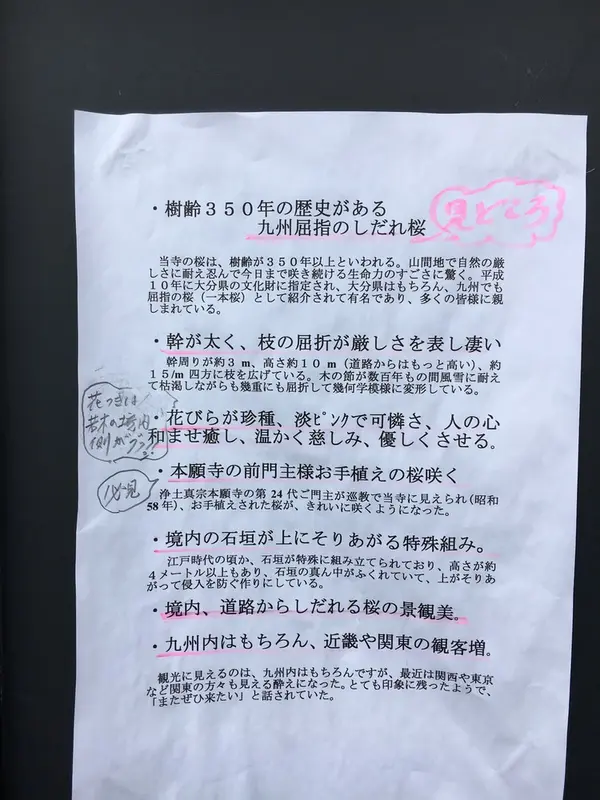 見どころ
・樹齢350年の歴史がある
九州屈指のしだれ桜
当寺の桜は、樹齢が350年以上といわれる。山間地で自然の厳
しさに耐え忍んで今日まで咲き続ける生命力のすごさに驚く。平成
10年に大分県の文化財に指定され、大分県はもちろん、九州でも
屈指の桜（一本桜）として紹介されて有名であり、多くの皆様に親
しまれている。
・幹が太く、枝の屈折が厳しさを表し凄い
幹周りが約3m、高さ約10m（道路からはもっと高い）、約
15/m四方に枝を広げている。木の節が数百年もの間風雪に耐え
て枯渇しながらも幾重にも屈折して幾何学模様に変形している。
花つきは
若木の境内
側が
・花びらが珍種、淡ﾋﾟﾝｸで可憐さ、人の心
和ませ癒し、温かく慈しみ、優しくさせる。
必見
・本願寺の前門主様お手植えの桜咲く
浄土真宗本願寺の第24代ご門主が巡教で当寺に見えられ（昭和
58年）、お手植えされた桜が、きれいに咲くようになった。
・境内の石垣が上にそりあがる特殊組み。
江戸時代の頃か、石垣が特殊に組み立てられており、高さが約
4メートル以上もあり、石垣の真ん中がふくれていて、上がそりあ
がって侵入を防ぐ作りにしている。
・境内、道路からしだれる桜の景観美。
・九州内はもちろん、近畿や関東の観客増。
観光に見えるのは、九州内はもちろんですが、最近は関西や東京
など関東の方々も見える酔えになった。とても印象に残ったようで、
「またぜひ来たい」と話されていた。